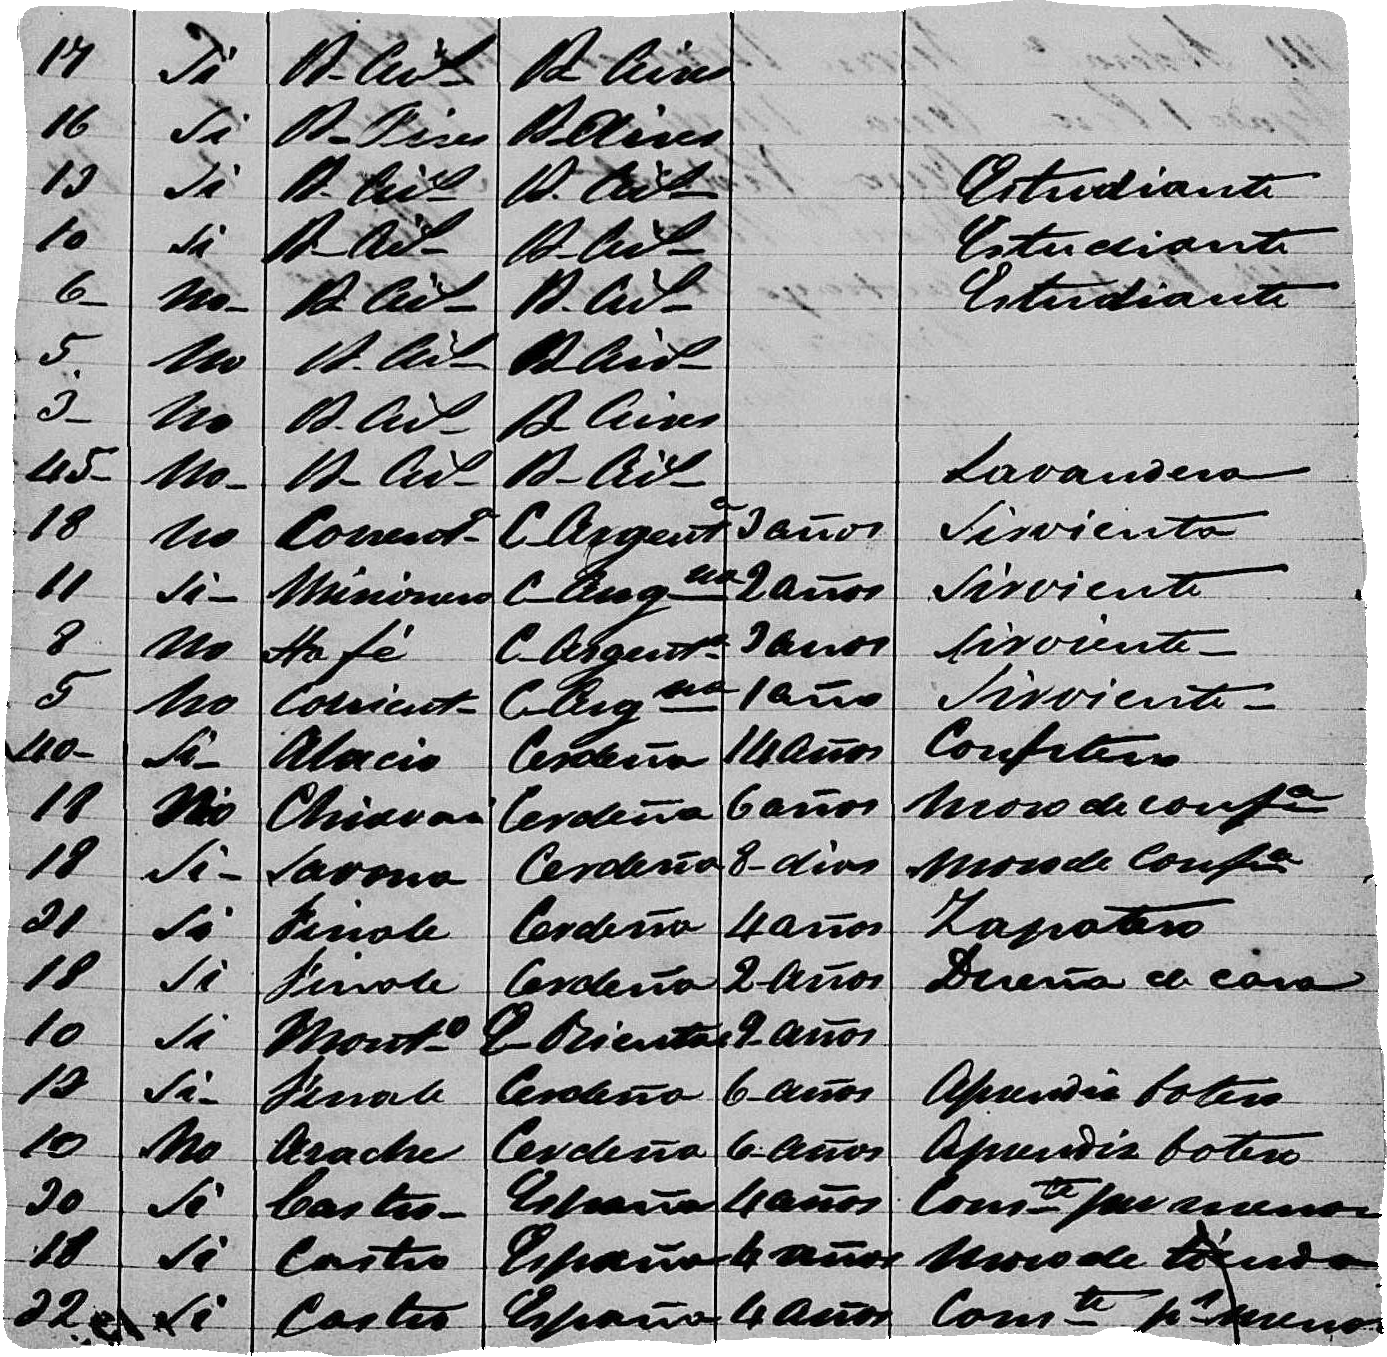 17 Si B- Ais- B- Aires
16 Si B- Aires B- Aires
13 Si B- Ais- B. Ais- Estudiante
10 Si B- Ais- B- Ais- Estudiante
6- No- B- Ais- B- Ais- Estudiante
5 No B- Ais- B- Ais-
3- No B- Ais- B- Aires
45- No- B- Ais- B- Ais- Lavandera
18 No Corrent- C- Argentª 3 años Sirvienta
11 Si- Misionero C- Argna 2 años Sirviente
8 No Sta fé C- Argentª 3 años Sirviente-
5 No Corrient- C- Argna 1 año Sirviente-
40- Si- Alacio Cerdeña 14 años Confitero
18 No Chiavari Cerdeña 6 años Moso de confª
18 Si- Savona Cerdeña 8- dias Moso de Confª
21 Si Finale Cerdeña 4 años Zapatero
18 Si Finale Cerdeña 2 años Dueña de casa
10 Si Montº E- Oriental 9 años
12 Si- Finale Cerdeña 6 años Aprendis botero
10 No Arache Cerdeña 6 años Aprendis botero
20 Si Castro- España 4 años Comte por menor
18 Si Castro España 4 años Moso de tienda
22 Si Castro España 4 años Comte pr menor